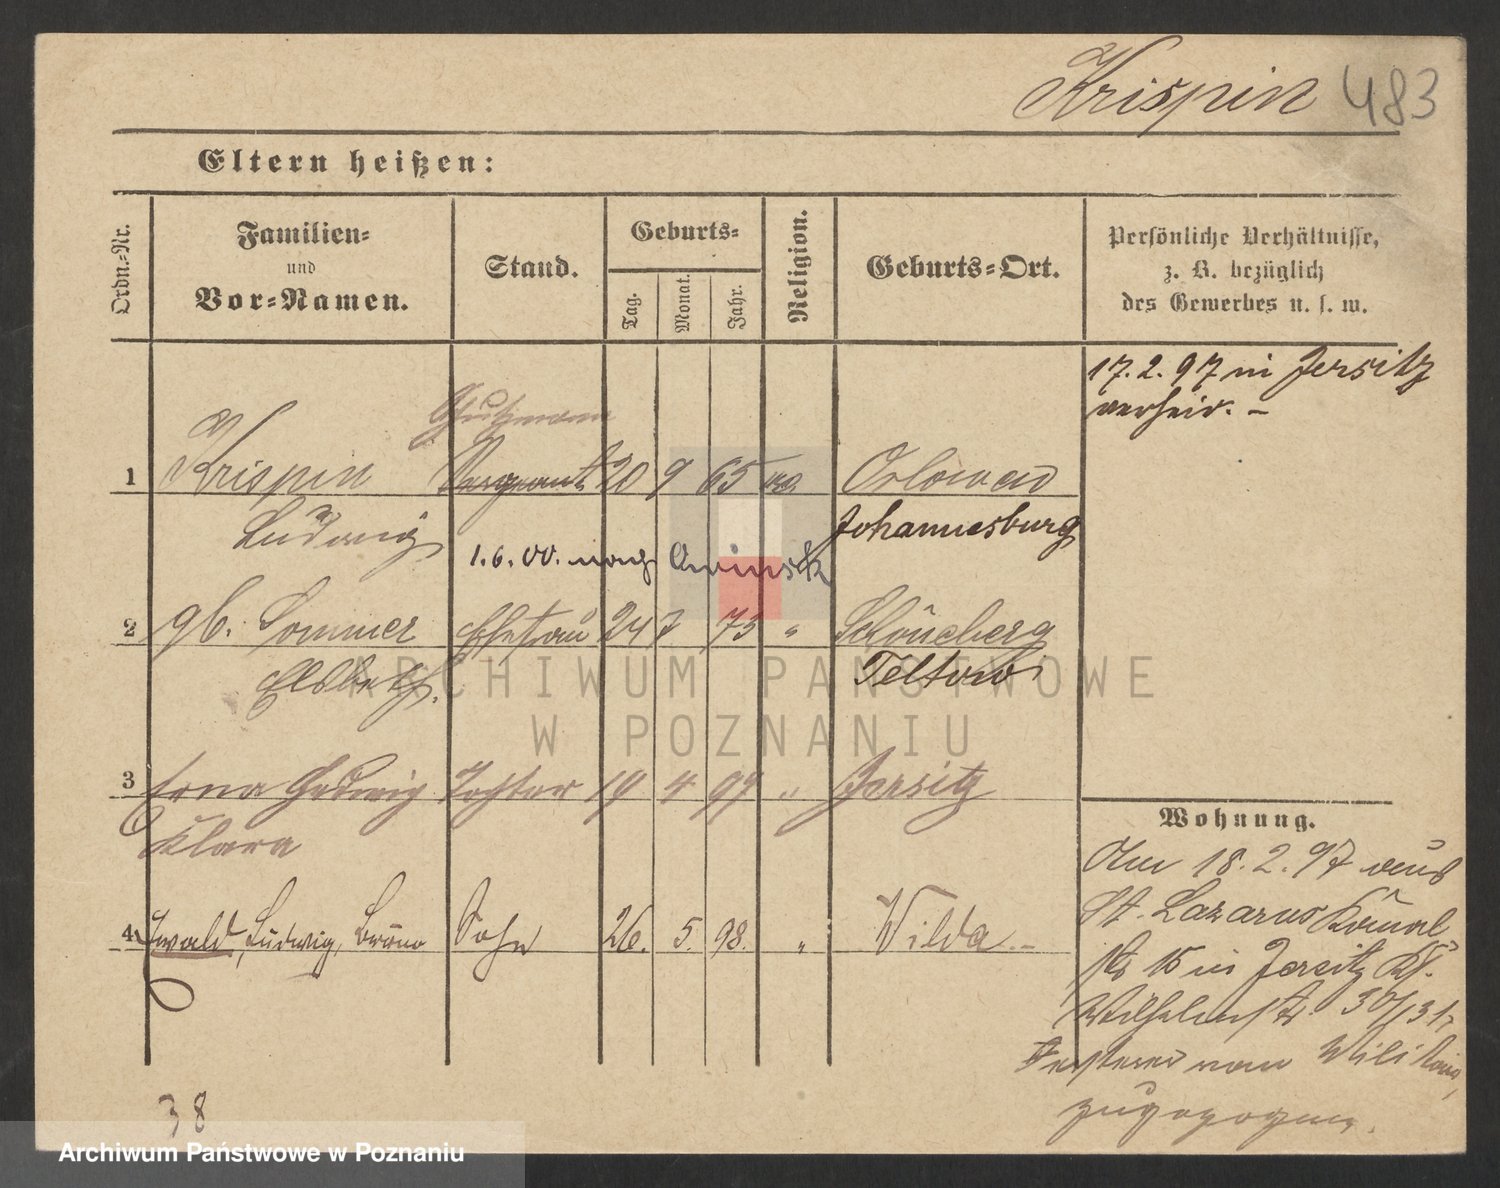 Krispin 483
Eltern heißen:
Ordn.-Nr.
Familien-
und
Vor-Namen.
Stand.
Geburts-
Tag.
Monat.
Jahr.
Religion.
Geburts-Ort.
Persönliche Verhältnisse,
z. B. bezüglich
des Gewerbes u. s. w.
17. 2. 97 in Jersitz
verheir. -
Schutzmann
1 Krispin Sergeant 20 9 65 Orlowen
Ludwig Johannesburg
1. 6. 00. nach
2 gb. Sommer Ehefrau 24 7 75 " Schöneberg
Elsbeth. Teltow
3 Erna Hedwig Tochter 19 4 97 " Jersitz
Klara
4 Ewald, Ludwig, Bruno Sohn 26. 5. 98. " Wilda
Wohnung.
Am 18. 2. 97 aus
St. Lazarus Kanal
str 15 in Jersitz
Wilhelmstr 30/31
Ersterer vom Militair
zugezogen.
38
ARCHIWUM PAŃSTWOWE
W POZNANIU
Archiwum Państwowe w Poznaniu